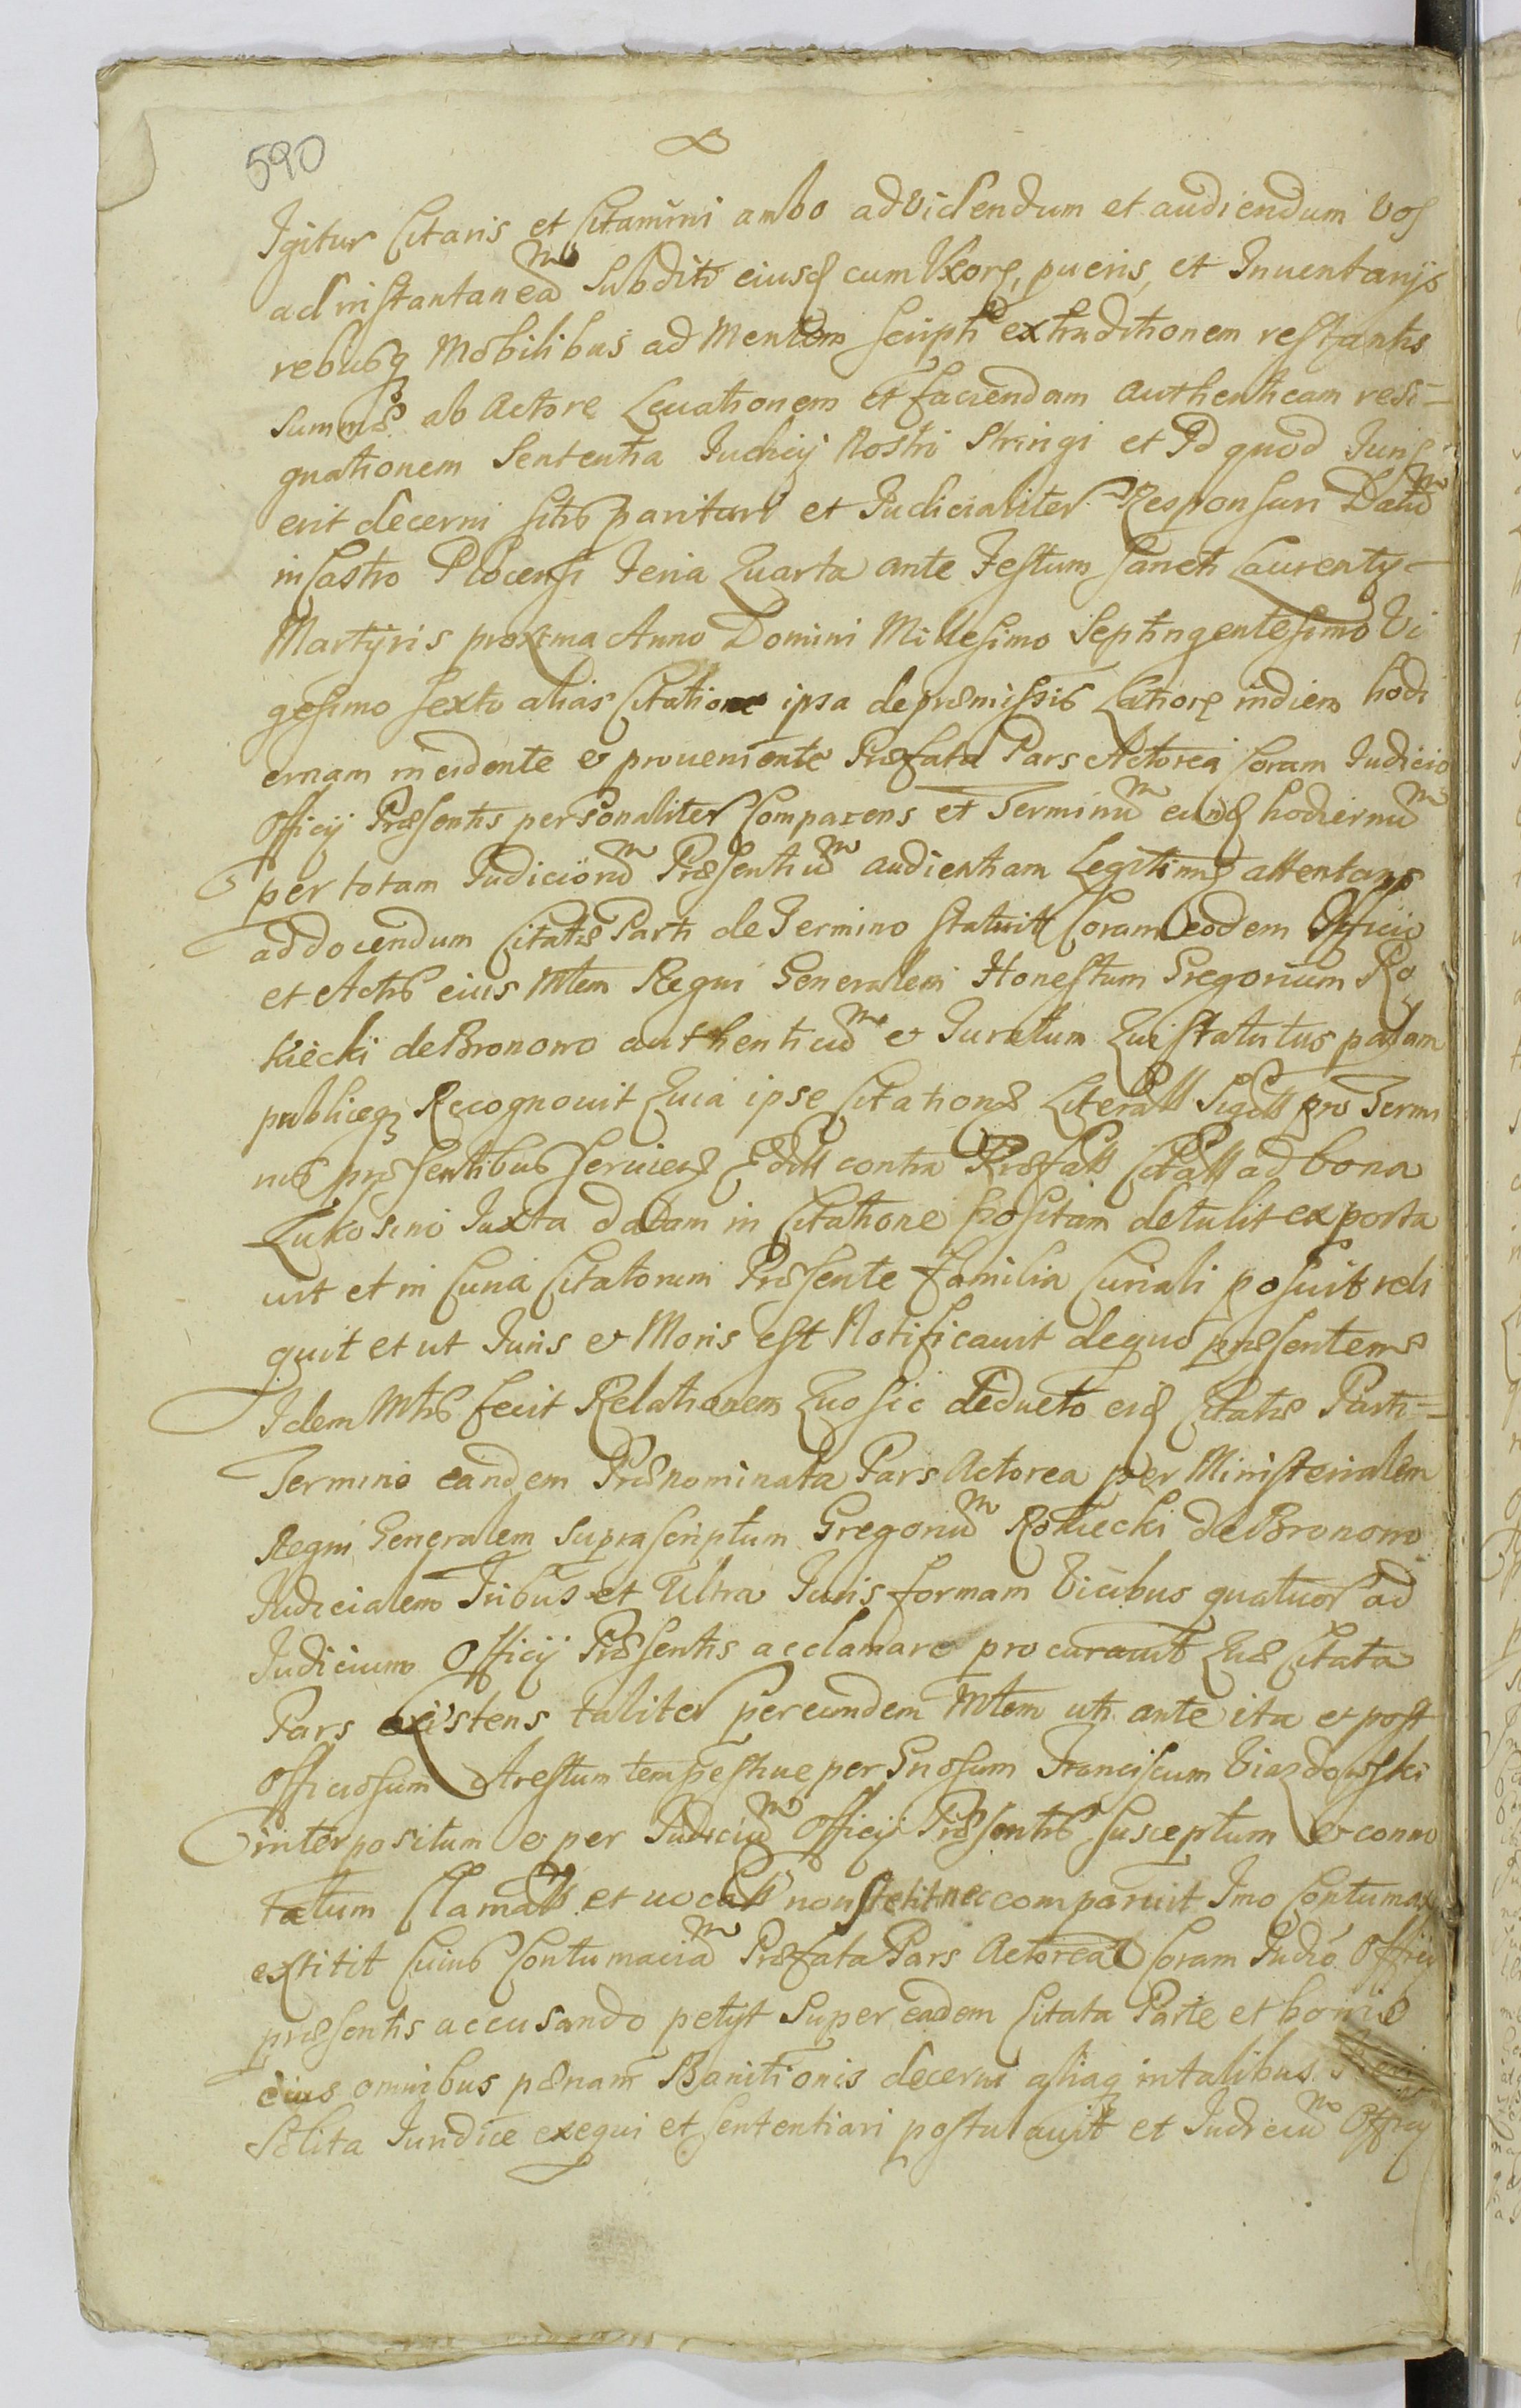 590
Igitur Citaris et Citamini ambo ad videndum et audiendum vos
ad instantaneam subditi eiusd cum Uxore, pueris, et Inventarijs
rebusq Mobilibus ad Mentem scripti extraditionem restantis
summæ ab Actore Levationem et faciendam authenticam resi-
gnationem Sententia Judicij Nostri Stringi et Id quod Juris
erit decerni sitis parituri et Judicialiter Responsuri Datum
in Castro Plocensi Feria Quarta ante Festum Sancti Laurentij
Martyris proxima Anno Domini Millesimo Septingentesimo Vi
gesimo sexto alias Citatione ipsa de præmissis Latiore in diem hodi
ernam incidente & proveniente Præfata Pars Actorea Coram Judicio
Officij Præsentis personaliter Comparens et Terminum eund hodiernum
per totam Judiciorum Præsentium audientiam Legitime attentans
ad docendum Citatæ Parti de Termino statuit Coram eodem Officio
et Actis eius Mtlem Regni Generalem Honestum Gregorium Ro
kiecki de Bronowo authenticum & Juratum Qui statutus palam
publiceq Recognovit Quia ipse Citationem Literal Sigil pro Termi
nis præsentibus servien Edit contra Præfat Citat ad bona
Lukosino Juxta datam in Citatione positam detulit exporta
vit et in Curia Citatorum Præsente familia Curiali posuit reli
quit et ut Juris & Moris est Notificavit de quo præsentem
Idem Mtlis fecit Relationem Quo sic deducto eid Citatæ Parti
Termino eandem Prænominata Pars Actorea per Ministerialem
Regni Generalem suprascriptum Gregorium Rokiecki de Bronowo
Judicialem Tribus et Ultra Juris formam Vicibus quatuor ad
Judicium Officij Præsentis acclamare procuravit Quæ Citata
Pars existens taliter per eundem Mtlem uti ante ita et post
Officiosum Arestum tempestive per Gnosum Franciscum Viazdowski
interpositum & per Judicium Officij Præsentis susceptum & conno
tatum Clamat et vocat non stetit nec comparuit Imo Contumax
extitit Cuius Contumaciam Præfata Pars Actorea Coram Judio Officij
præsentis accusando petijt super eadem Citata Parte et bonis
eius omnibus pænam Banitionis decerni aliaq in talibus
Solita Juridice exequi et sententiari postulavit et Judicium Officij